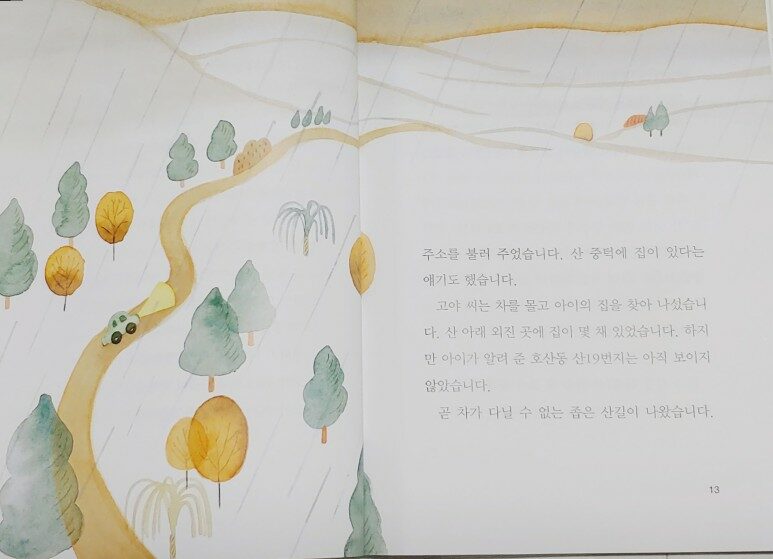 주소를 불러 주었습니다. 산 중턱에 집이 있다는
얘기도 했습니다.
고야 씨는 차를 몰고 아이의 집을 찾아 나섰습니
다. 산 아래 외진 곳에 집이 몇 채 있었습니다. 하지
만 아이가 알려 준 호산동 산19번지는 아직 보이지
않았습니다.
곧 차가 다닐 수 없는 좁은 산길이 나왔습니다.
13